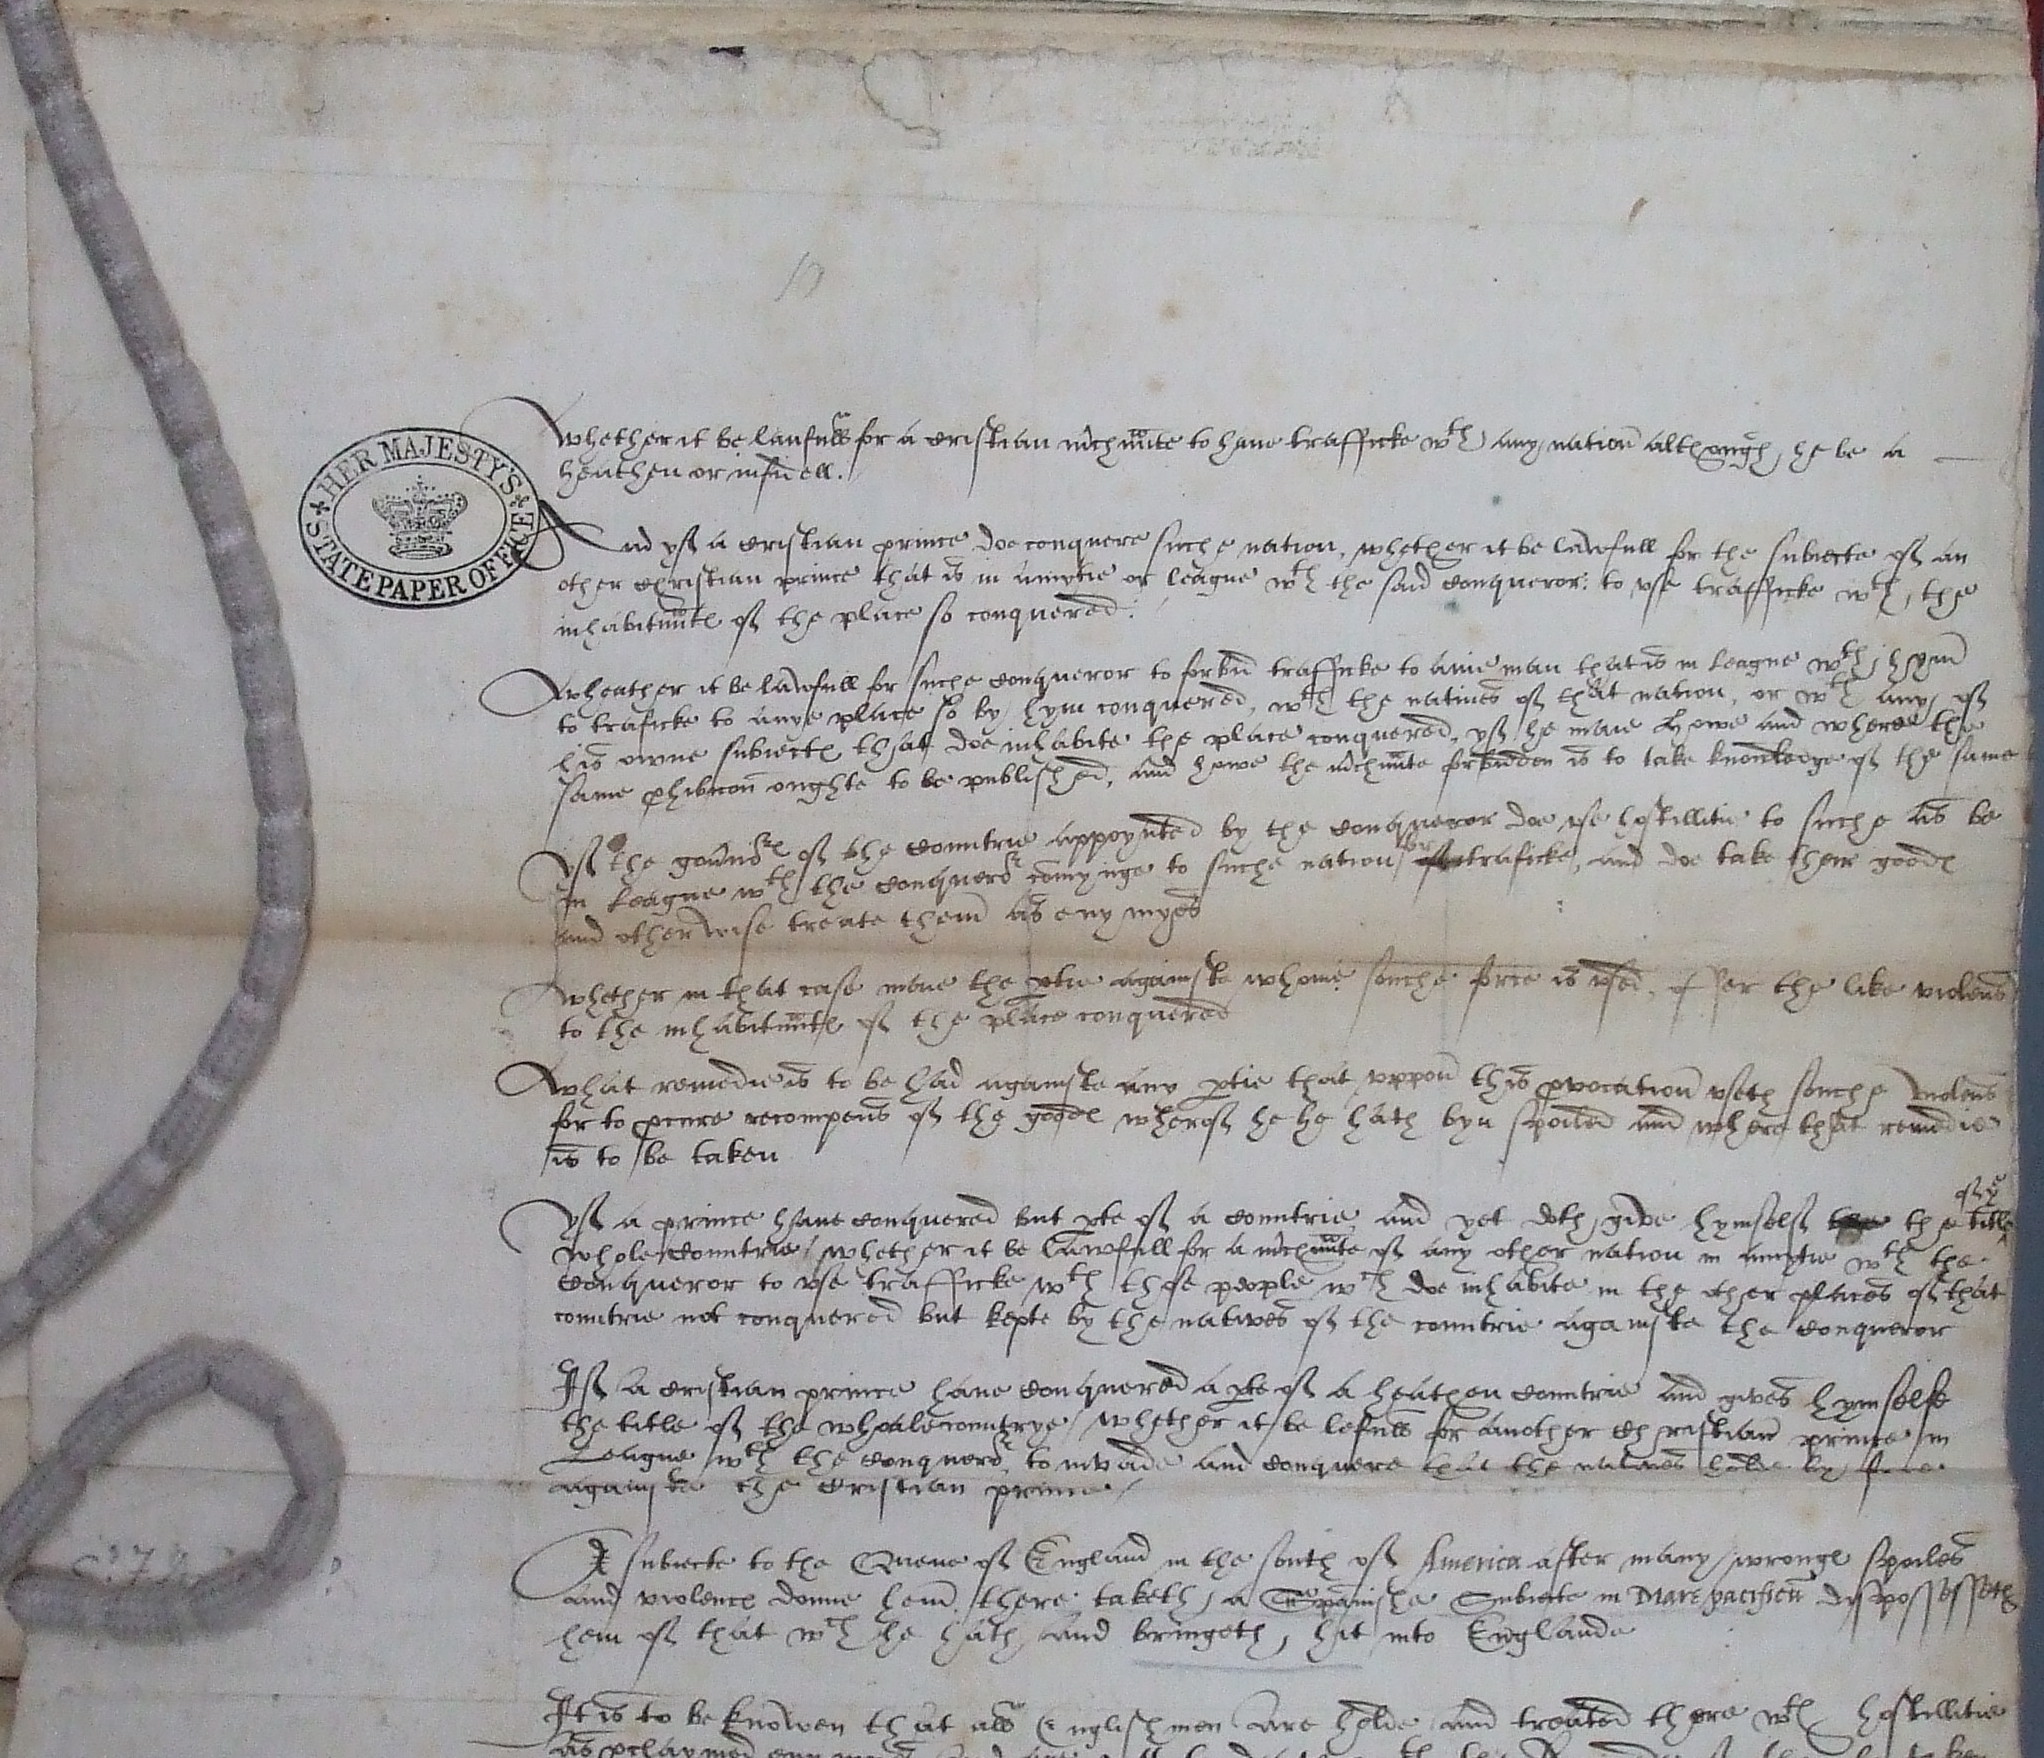 HER MAJESTY'S
STATE PAPER OFFICE
Whether it be laufull for a cristian mchaunte to have trafficke wth any nation although he be a
heathen or infidell.
And yf a cristian prince doe conquere suche nation, whether it be lawfull for the subiecte of an
other christian prince that is in amytie or league wth the said conqueror: to vse trafficke wth, the
inhabitauntes of the place so conquered.
Wheather it be lawfull for suche conqueror to forbid trafficke to anie man that is in league wth hym
to traficke to anye place so by hym conquered, wth the natives of that nation, or wth any of
his owne subiectes that doe inhabite the place conquered, yf he maie Howe and where the
same phibicon oughte to be published, and howe the mchaunte forbidden is to take knowledge of the same
Yf the gouvnors of the countrie appoynted by the conqueror doe vse hostillitie to suche as be
in league wth the conqueror comynge to suche nation for traficke, and doe take their goodes
and otherwise treate them as enymyes
Whether in that case maie the ptie againste whome souche force is vsed, offer the like violens
to the inhabitauntes of the place conquered
What remedie is to be had againste any ptie that vppon this pvocation vseth souche violens
for to pcure recompens of the goodes wherof he he hath byn spoiled and where that remedie
is to be taken
Yf a prince have conquered but pte of a countrie and yet doth give hymself the title of ye
whole countrie / whether it be lawfull for a mchaunte of any other nation in amytie wth the
conqueror to vse trafficke wth those people wch doe inhabite in the other places of that
countrie not conquered but kepte by the natives of the countrie againste the conqueror
If a cristian prince have conquered a pte of a heathen countrie and gives hymselfe
the title of the whoale countrye / whether it be lefull for another christian prince in
League wth the conqueror, to invade and conquere that the natives holde by force
againste the cristian prince /
A subiecte to the Quene of England in the south of America after many wronges spoiles
and violences donne hem there taketh, a Spanishe Subiecte in Mare pacificu dispossesseth
hem of that wch he hath and bringeth, hit into Englande
It is to be knowen that all Englishmen are holde and treated there wth hostillitie
as pclaymed